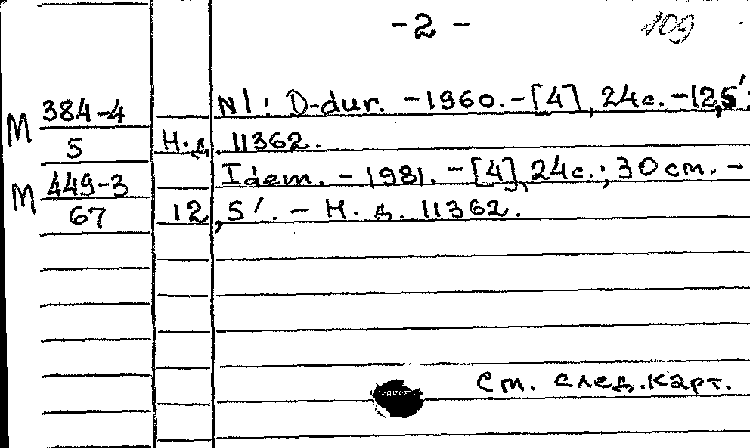 - 2 -
109
М 384-4 N1: D-dur. - 1960. - [4], 24с. - 12,5'.
5 Н. д. 11362.
М 449-3 Idem. - 1981. - [4], 24с.; 30 см. -
67 12,5'. - Н. д. 11362.
См. след. карт.